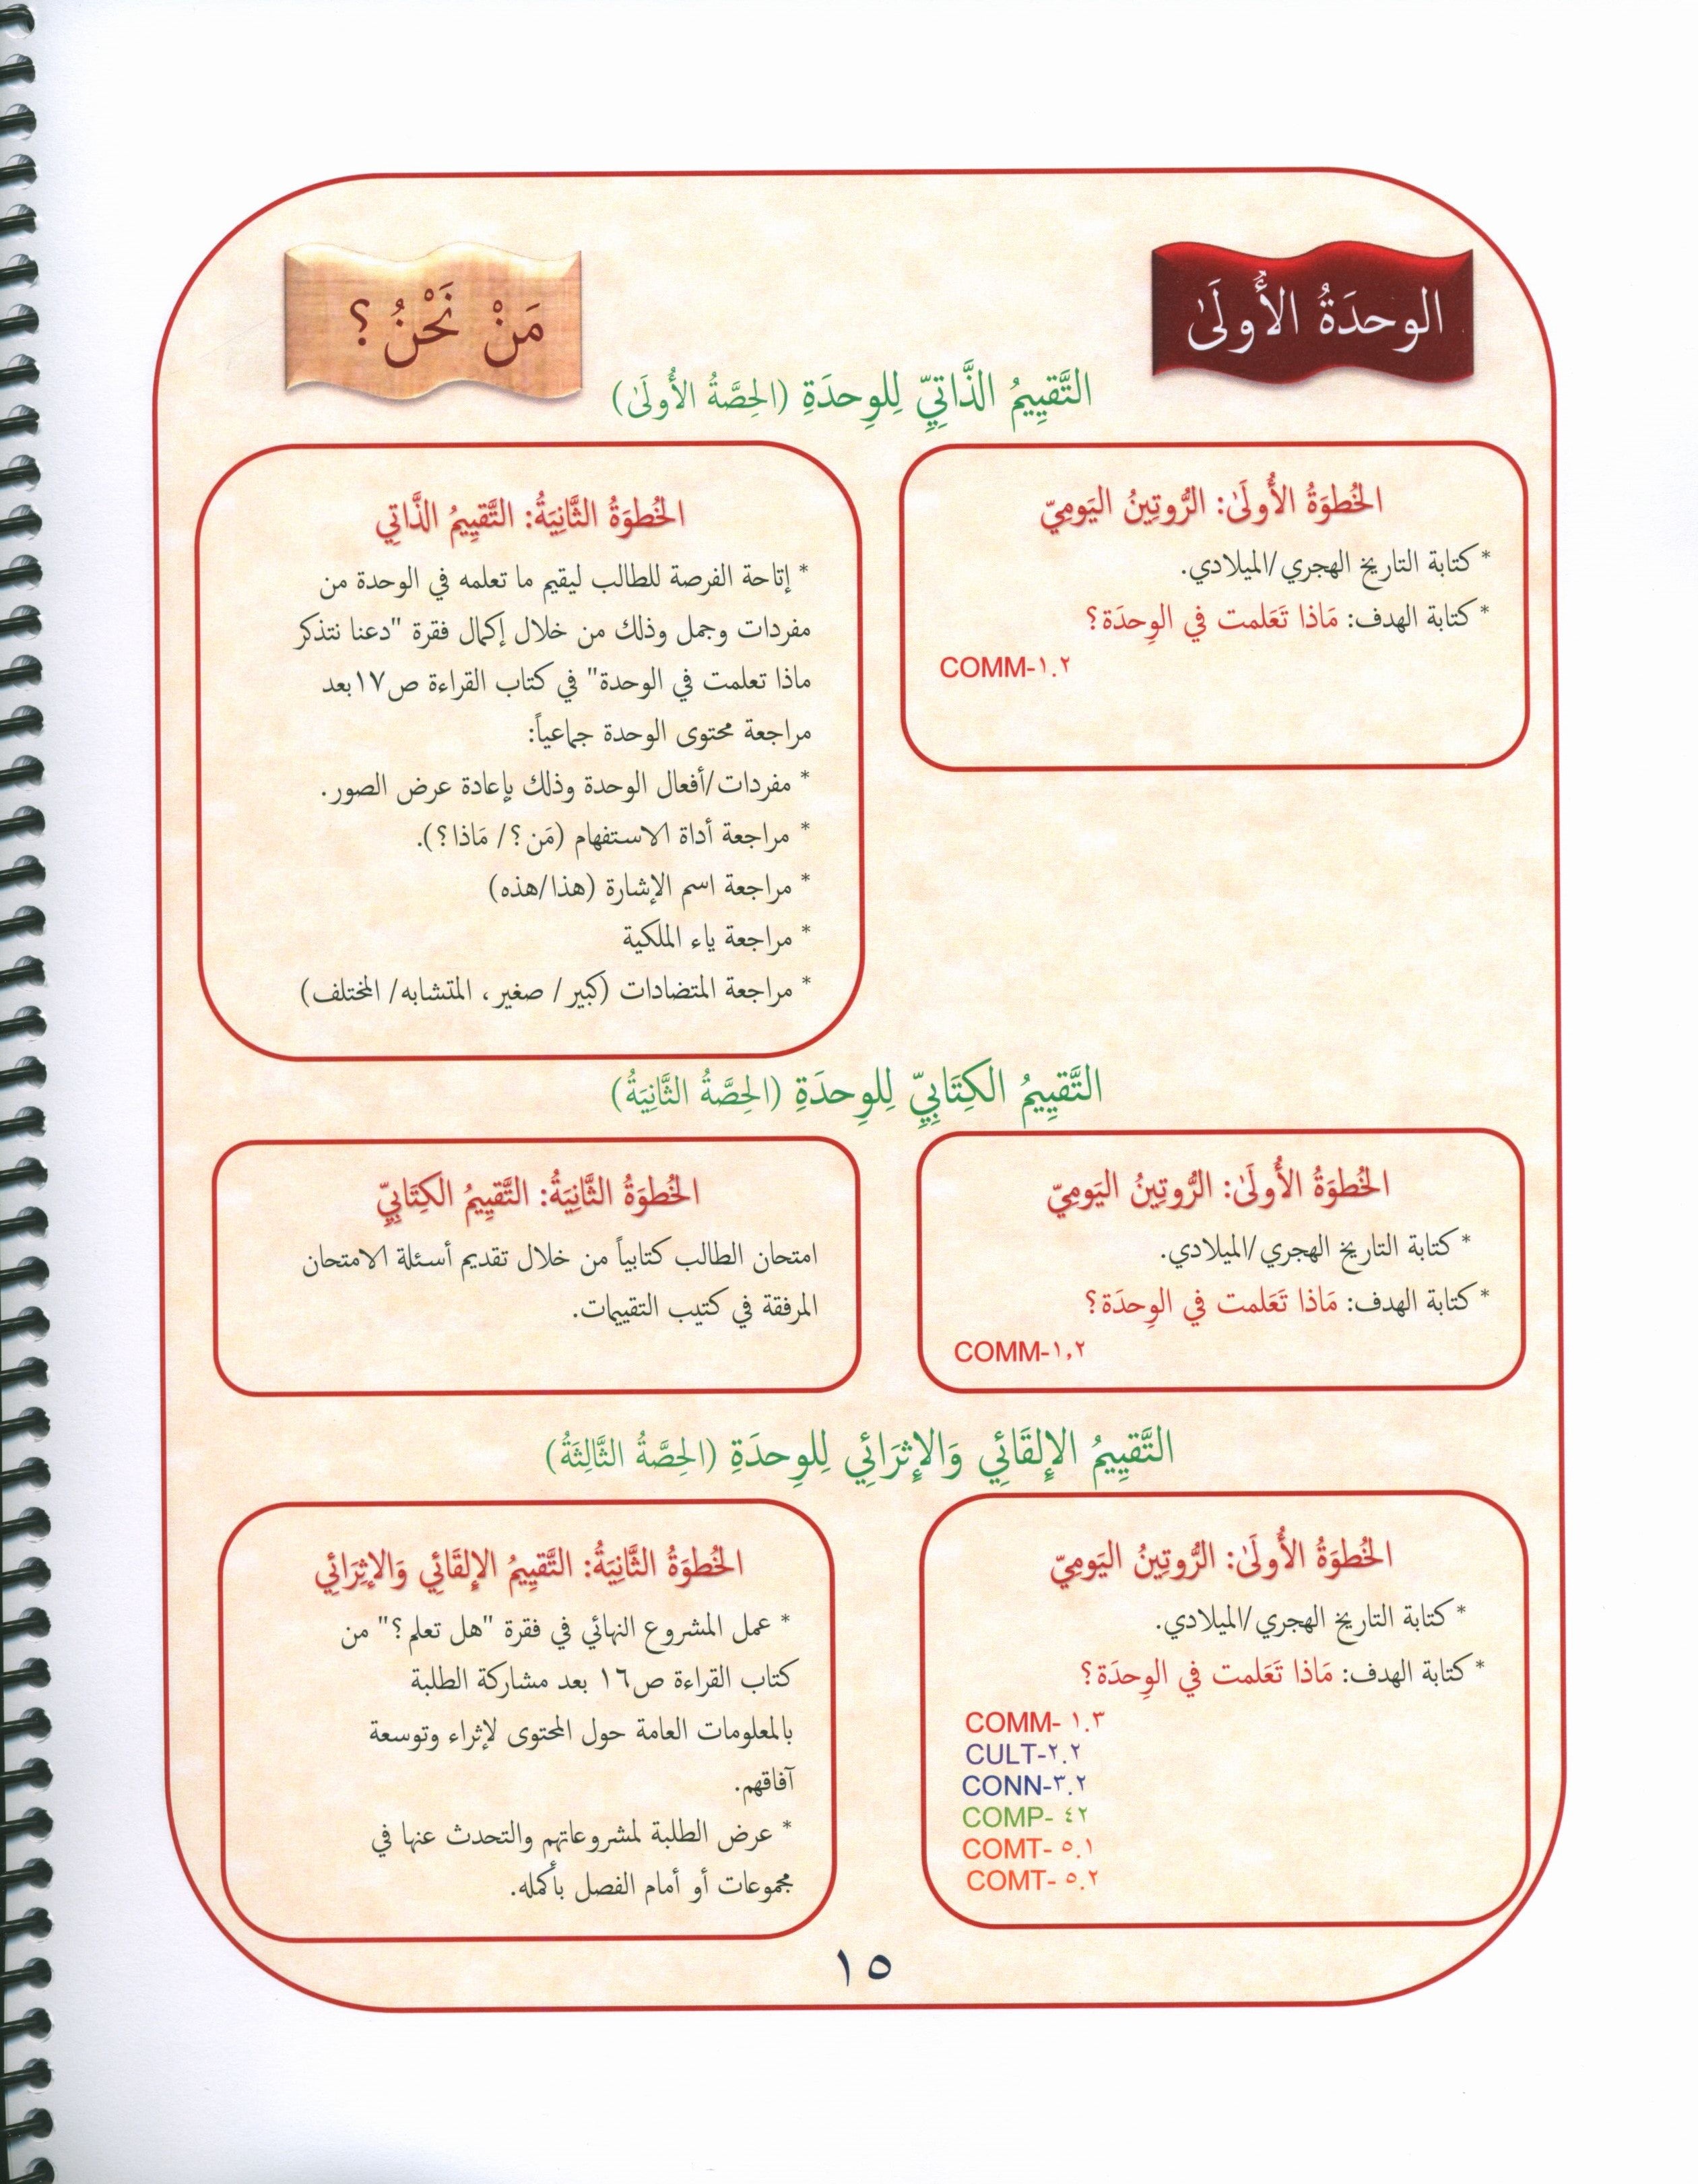 الوحدَةُ الأُولَىٰ
مَنْ نَحْنُ ؟
التَّقيِيمُ الذَّاتِيِّ لِلوِحدَةِ (الحِصَّةُ الأُولَىٰ)
الخُطوَةُ الأُولَىٰ: الرُّوتِينُ اليَومِيّ
* كتابة التاريخ الهجري/الميلادي.
* كتابة الهدف: مَاذا تَعَلمت في الوِحدَة؟
COMM-١.٢
الخُطوَةُ الثَّانِيَةُ: التَّقيِيمُ الذَّاتي
* إتاحة الفرصة للطالب ليقيم ما تعلمه في الوحدة من
مفردات وجمل وذلك من خلال إكمال فقرة "دعنا نتذكر
ماذا تعلمت في الوحدة" في كتاب القراءة ص١٧بعد
مراجعة محتوى الوحدة جماعياً:
* مفردات/أفعال الوحدة وذلك بإعادة عرض الصور.
* مراجعة أداة الاستفهام (مَن؟/ مَاذا؟).
* مراجعة اسم الإشارة (هذا/هذه)
* مراجعة ياء الملكية
* مراجعة المتضادات (كبير/ صغير، المتشابه/ المختلف)
التَّقيِيمُ الكِتَابِيِّ لِلوِحدَةِ (الحِصَّةُ الثَّانِيَةُ)
الخُطوَةُ الأُولَىٰ: الرُّوتِينُ اليَومِيّ
* كتابة التاريخ الهجري/الميلادي.
* كتابة الهدف: مَاذا تَعَلمت في الوِحدَة؟
COMM-١,٢
الخُطوَةُ الثَّانِيَةُ: التَّقيِيمُ الكِتَابِيِّ
امتحان الطالب كتابياً من خلال تقديم أسئلة الامتحان
المرفقة في كتيب التقييمات.
التَّقيِيمُ الإلقَائي وَالإثرَائي لِلوِحدَةِ (الحِصَّةُ الثَّالِثَةُ)
الخُطوَةُ الأُولَىٰ: الرُّوتِينُ اليَومِيّ
* كتابة التاريخ الهجري/الميلادي.
* كتابة الهدف: مَاذا تَعَلمت في الوِحدَة؟
COMM- ١.٣
CULT-٢.٢
CONN-٣.٢
COMP- ٤٢
COMT- ٥.١
COMT- ٥.٢
الخُطوَةُ الثَّانِيَةُ: التَّقيِيمُ الإلقَائي وَالإثِرَائي
* عمل المشروع النهائي في فقرة "هل تعلم؟" من
كتاب القراءة ص١٦ بعد مشاركة الطلبة
بالمعلومات العامة حول المحتوى لإثراء وتوسعة
آفاقهم.
* عرض الطلبة لمشروعاتهم والتحدث عنها في
مجموعات أو أمام الفصل بأكمله.
١٥